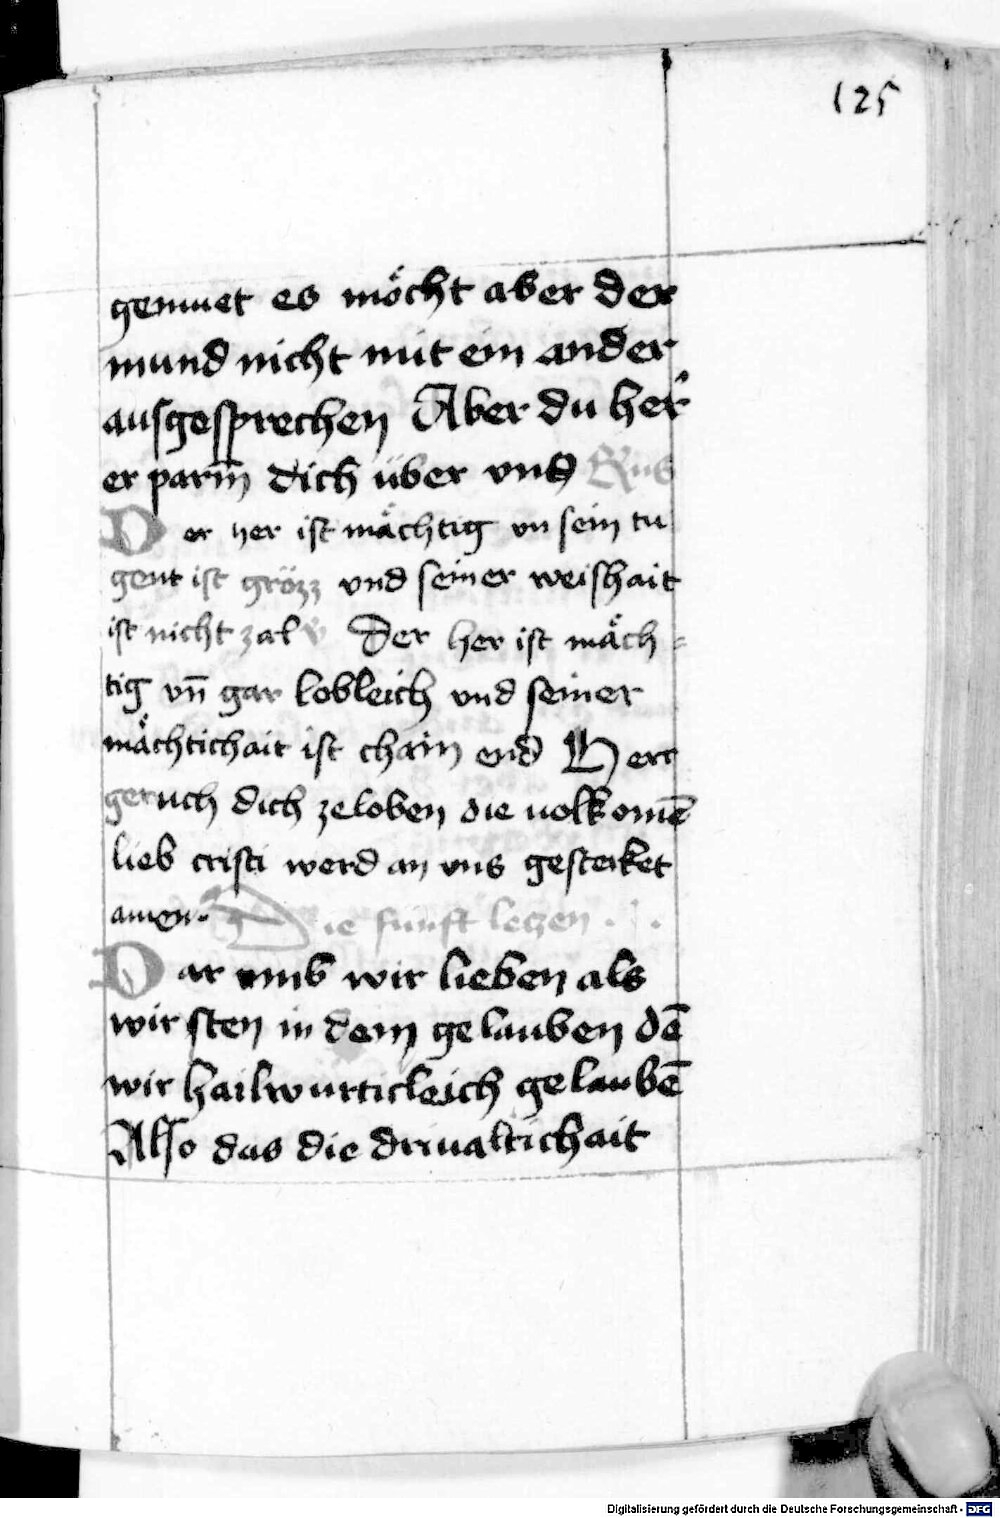 125
gemuet es möcht aber der
mund nicht mit ein ander
ausgesprechen Aber du her
er parm̅ dich über vns Rns
Der her ist mächtig vn sein tu
gent ist grözz vnd seiner weishait
ist nicht zal v Der her ist mäch =
tig vn̅ gar lobleich vnd seiner
mächtichait ist chain end Herr
geruch dich zeloben die uolkomē
lieb cristi werd an vns gesterket
amen. Die fünft leczen . : .
Dar umb wir lieben als
wir sten in dem gelauben dē
wir hailwurticleich gelaubē
Also das die driualtichait
Digitalisierung gefördert durch die Deutsche Forschungsgemeinschaft - DFG